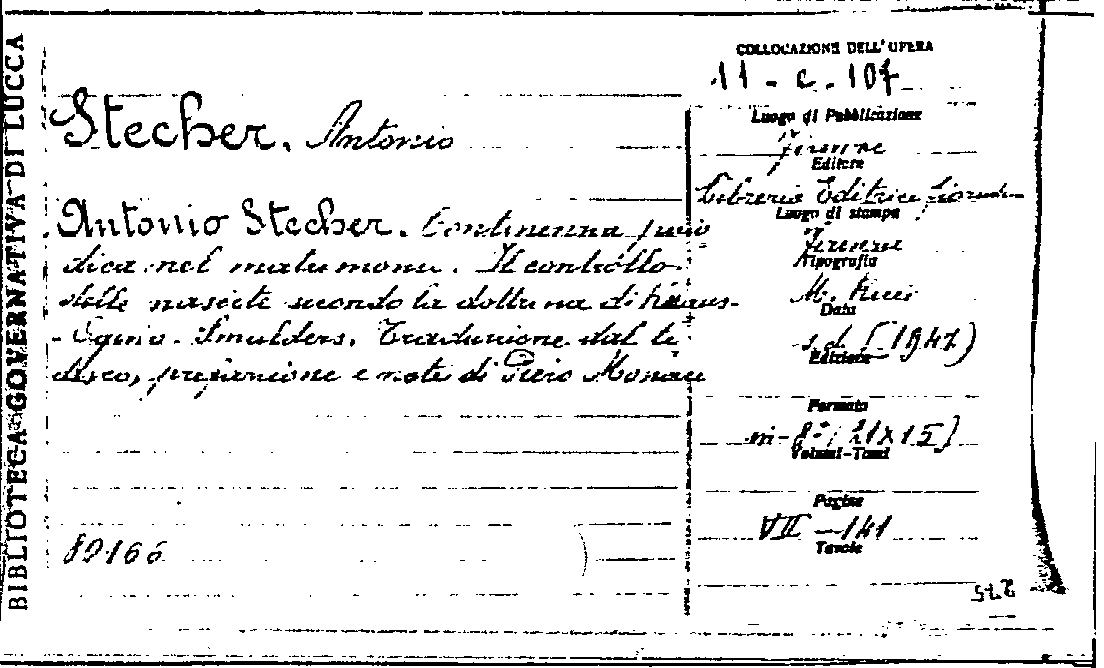 BIBLIOTECA GOVERNATIVA DI LUCCA
COLLOCAZIONE DELL'OPERA
11 - c. 107
Stecher, Antonio
Luogo di Pubblicazione
Firenze
Editore
Libreria Editrice Fioren-
Luogo di stampa
Firenze
Tipografia
M. Ricci
Data
s.d. (1947)
Edizione
Formato
in-8°, 21x15)
Volumi-Tomi
Pagine
VII - 141
Tavole
Antonio Stecher. Continenza perio
dica nel matrimonio. Il controllo
delle nascite secondo la dottrina di Knaus-
Ogino. Smulders. Traduzione dal te
desco, prefazione e note di Piero Monaci
89166
275